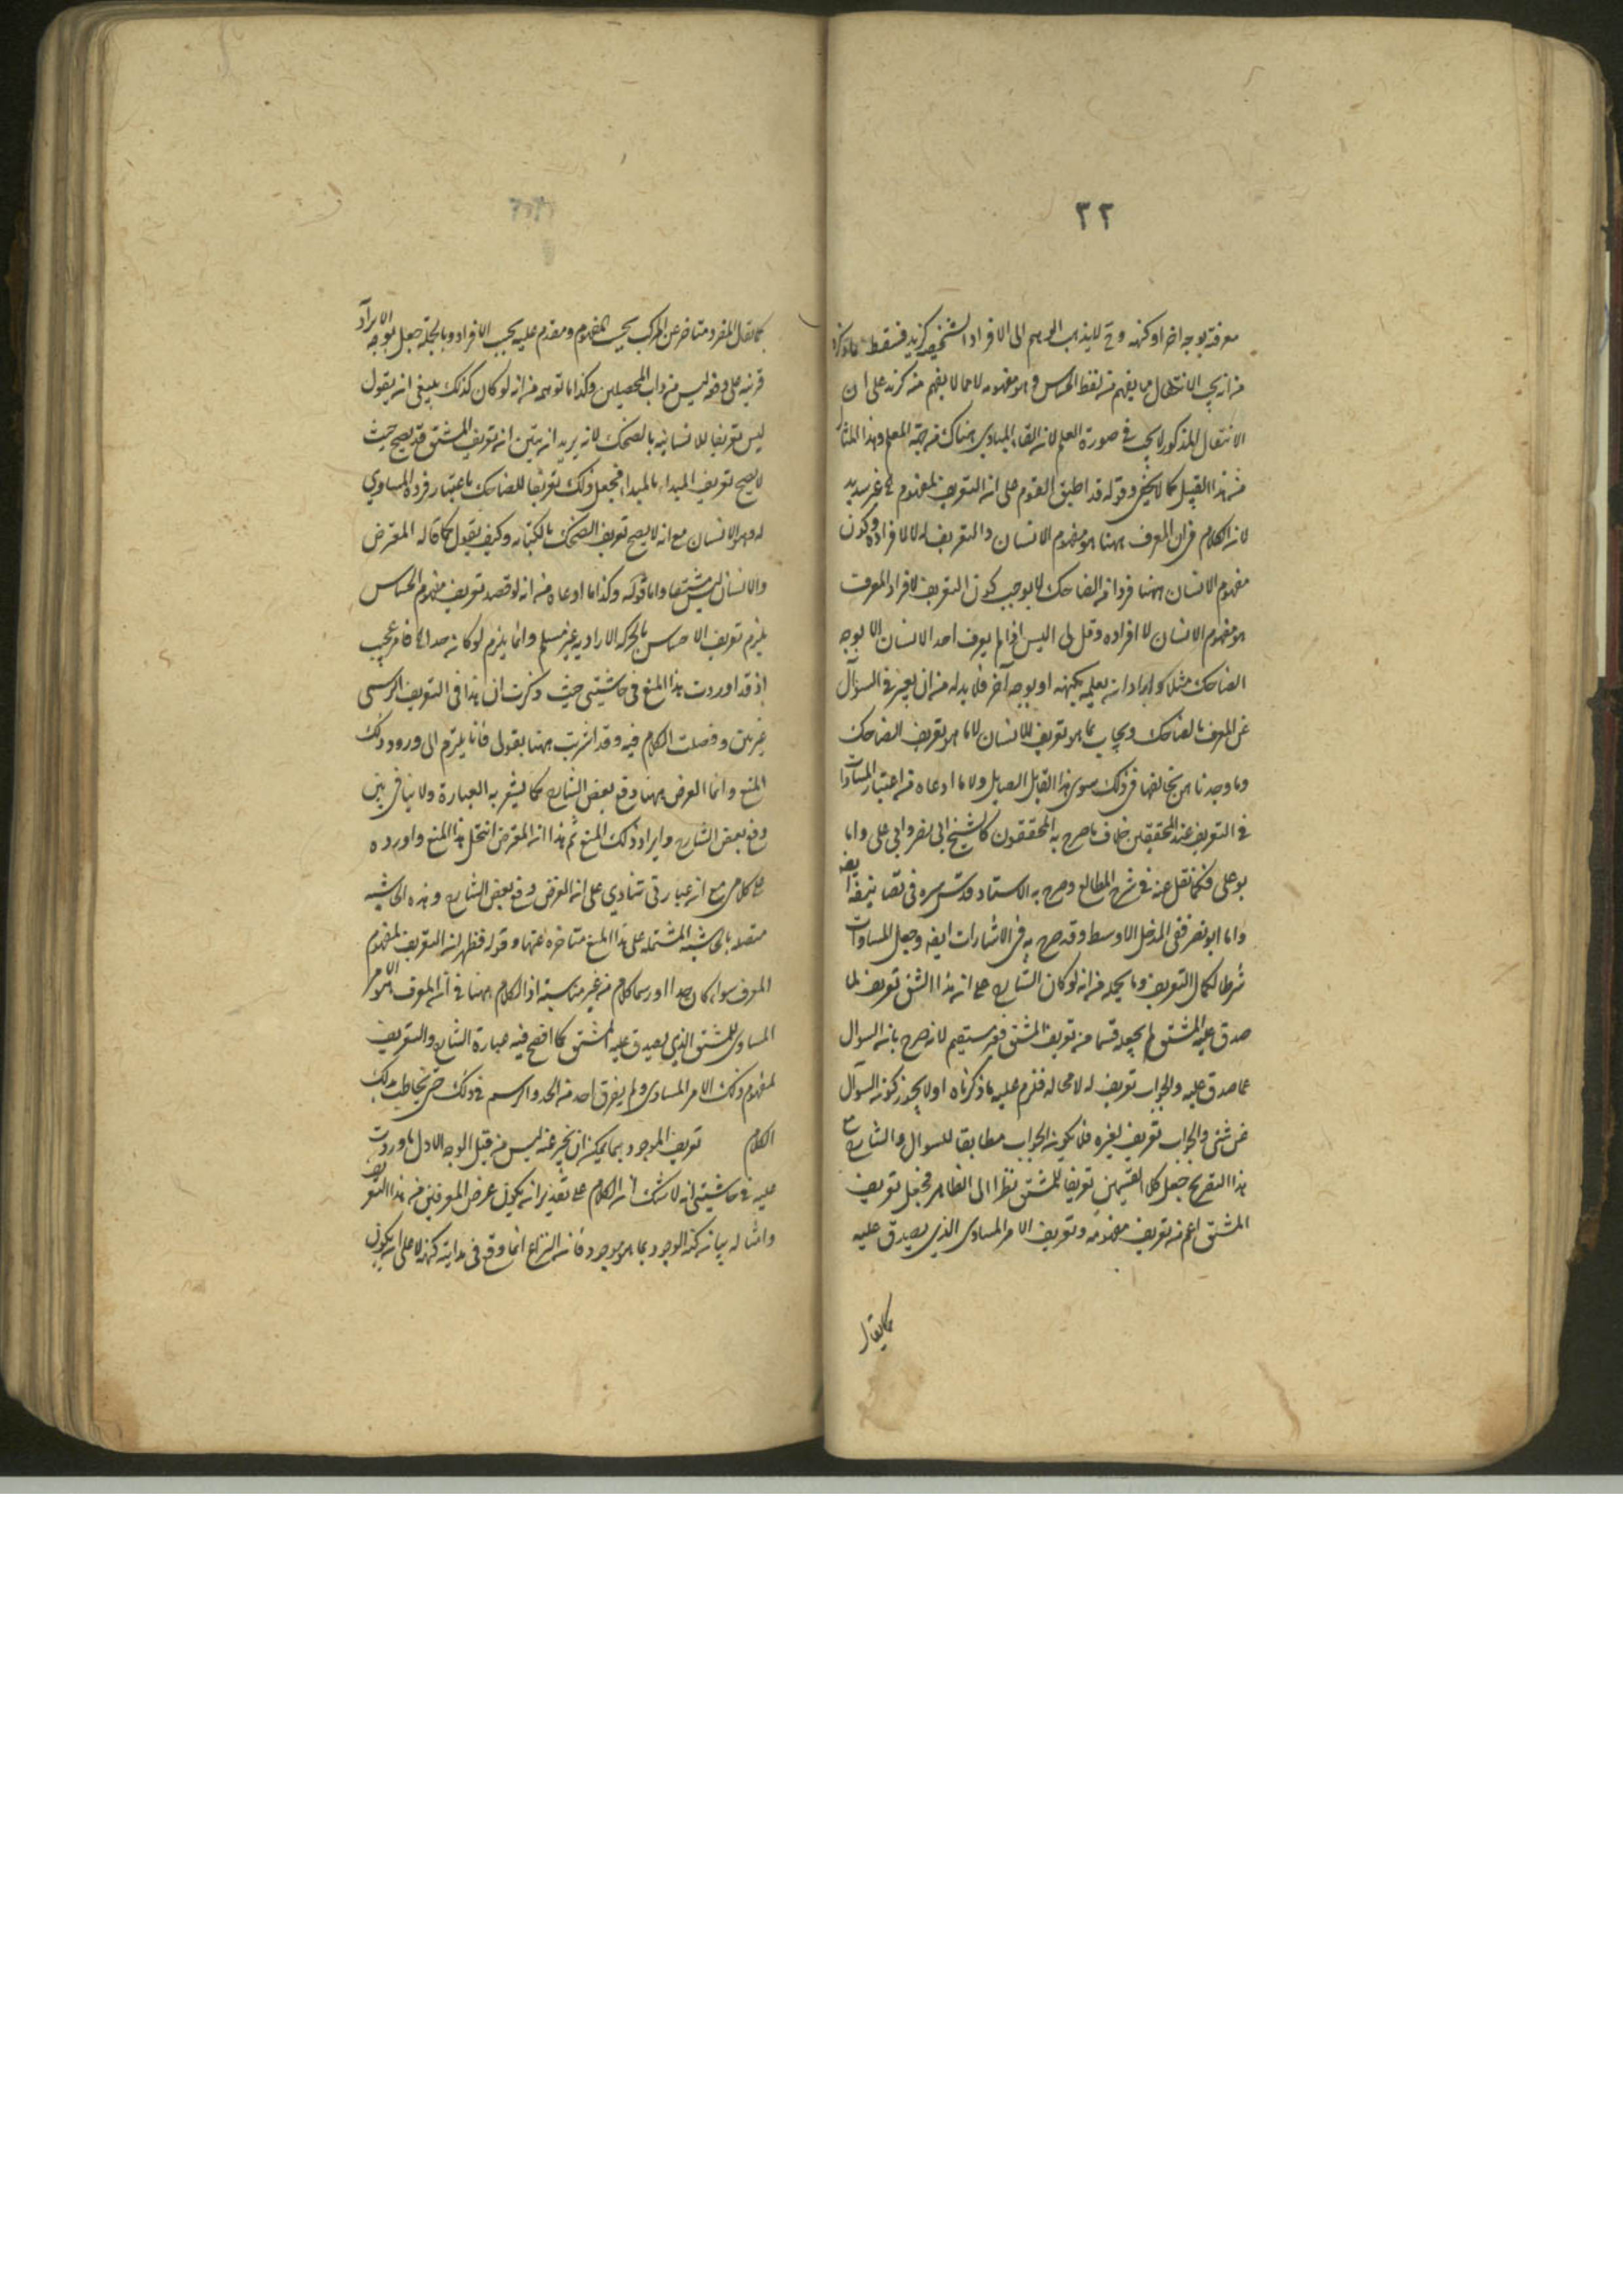 ٣٢
معرفته بوجه اخر او كنهه وح لا يذهب الوهم الى الافراد الشخصية كزيد فسقط ما ذكره
من انه يجب الانتقال مما يفهم من لفظ الحساس وهو مفهومه لا مما لا يفهم منه كزيد على ان
الانتقال المذكور لا يجب في صورة العلم لانه القاء المبادي هناك من جهة المعلم وهذا المثال
من هذا القبيل كما لا يخفى وقوله قد اطبق القوم على انه التعريف لمفهوم غير سديد
لانه الكلام في ان المعرف ههنا هو مفهوم الانسان والتعريف له لا لافراده وكون
مفهوم الانسان ههنا فردا من الضاحك لا يوجب كون التعريف لافراد المعرف
هو مفهوم الانسان لا افراده وقل لي اليس اذا لم يعرف احد الانسان الا بوجه
الضاحك مثلا واراد ان يعلمه بكنهه او بوجه آخر فلا بد له من ان يعبر في السؤال
عن المعرف بالضاحك ويجاب بما هو تعريف للانسان لا بما هو تعريف الضاحك
وما وجدنا من يخالفنا في ذلك سوى هذا القايل ولا ما ادعاه من اعتبار المساوات
في التعريف عند المحققين خلاف ما صرح به المحققون كالشيخ ابي نصر وابي علي واما
بو علي فكما نقل عنه في شرح المطالع وصرح به الاستاد قدس سره في تصانيفه ايضا
واما ابو نصر ففي المدخل الاوسط وقد صرح به في الاشارات ايضا وجعل المساوات
شرطا لكمال التعريف وما يجده من انه لو كان الشارح على انه هذا الشق تعريف لما
صدق عليه المشتق لم يجعله قسما من تعريف المشتق فغير مستقيم لانه صرح بانه السوال
عما صدق عليه والجواب تعريف له لا محاله فلزم عليه ما ذكرناه او لا يجوز كونه السؤال
عن شئ والجواب تعريف لغيره فلا يكون الجواب مطابقا للسوال والشارح مع
هذا التصريح جعل كلا القسمين تعريفا للمشتق نظرا الى الظاهر فجعل تعريف
المشتق اعم من تعريف مفهومه وتعريف الامر المساوى الذي يصدق عليه
كما يقال
كما يقال المفرد متاخر عن المركب بحسب المفهوم ومقدم عليه بحسب الافراد وبالجملة جعل توجه الايراد
قرينة على دفعه ليس من داب المحصلين وكذا ما توهمه من انه لو كان كذلك ينبغي انه يقول
ليس تعريفا للانسانية بالضحك لانه يريد انه يتبين انه تعريف المشتق قد يصح حيث
لا يصح تعريف المبداء بالمبداء فجعل ذلك تعريفا للضاحك باعتبار فرده المساوي
له وهو الانسان مع انه لا يصح تعريف الضحك بالكتابة وكيف يقول كما قاله المعترض
والانسان ليس مشتقا واما قوله وكذا ما ادعاه من انه لو قصد تعريف مفهوم الحساس
يلزم تعريف الاحساس بالحركة الارادية غير مسلم وانما يلزم لو كان حدا فامر عجيب
اذ قد اوردت هذا المنع في حاشيتي حيث ذكرت ان هذا في التعريف الرسمى
غير بين وفصلت الكلام فيه وقد اشرت ههنا بقولى فانا يلتزم الى ورود ذلك
المنع وانما الغرض ههنا دفع بعض الشارح كما يشعر به العبارة ولا ينافي بين
دفع بعض الشارح وايراد ذلك المنع ثم هذا انه المعترض انتحل هذا المنع واورده
على كلامى مع انه عبارتى تنادي على انه الغرض دفع بعض الشارح وهذه الحاشية
متصلة بالحاشية المشتملة على هذا المنع متاخرة عنها وقوله فظهر انه التعريف لمفهوم
المعرف سواء كان حدا او رسما كلام من غير مناسبة اذ الكلام ههنا في انه المعرف هو الامر
المساوى للمشتق الذي يصدق عليه المشتق كما افصح فيه عبارة الشارح والتعريف
لمفهوم ذلك الامر المساوى ولم يفرق احد من الحد والرسم في ذلك حتى يخاطب بذلك
الكلام تعريف الموجود بما يمكن ان يخبر عنه ليس من قبيل الوجه الاول ما وردت
عليه في حاشيتى انه لا شك انه الكلام على تقدير انه يكون غرض المعرفين من هذا التعريف
وامثاله بيانه كنه الوجود بما هو موجود فانه النزاع انما وقع في بداية كنهه لا على انه يكون